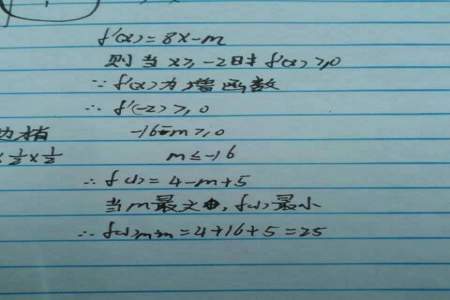 f'(x)=8x-m
则当x≥-2时f'(x)≥0
∵f'(x)为增函数
∴f'(-2)≥0
-16-m≥0
m≤-16
∴f(1)=4-m+5
当m最大,f(1)最小
∴f(1)min=4+16+5=25
×½×½